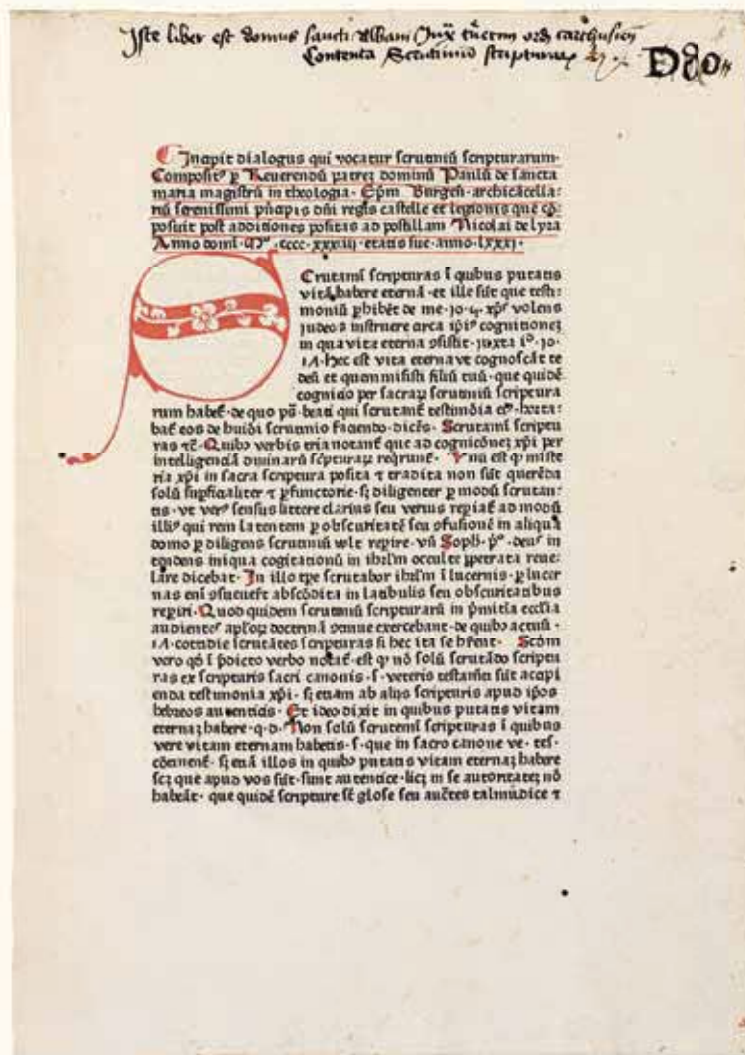 Iste liber est domus sancti Albani Iux̄ tr̄eu̅m ord̄ carthusien̄
Contenta Scrutiniū scripturaꝝ
D 8o
Incipit dialogus qui vocatur scrutiniū scripturarum·
Composit⁹ ꝑ Reuerendū patreꝫ dominū Paulū de sancta
maria magistrū in theologia· Ep̄m Burgeñ· archicācella⸗
riū serenissimi p̄ncipis dn̄i regis castelle et legionis que cō⸗
posuit post additiones positas ad postillam Nicolai de lyra
Anno domī· M⁰· cccc·xxxiiij· etatis sue· anno·lxxxj·
Scrutamī scripturas ī quibus putatis
vitā habere eternā· et ille sūt que testi⸗
moniū ꝑhibēt de me·io·ꝗ· xp̄s volens
iudeos instruere circa ip̄i⁹ cognitioneꝫ
in qua vita eterna ꝯsistit· iuxta id· io·
17· hec est vita eterna vt cognoscāt te
deū et quem misisti filiū tuū· que quidē
cognicio per sacraꝝ scrutiniū scriptura
rum habet̄· de quo pˢ· beati qui scrutant̄ testimōia ei⁹· horta⸗
bat̄ eos de hui⁹di scrutinio faciendo· dicēs· Scrutamī scriptu
ras ⁊c̄· Quibꝰ verbis tria notant̄ que ad cognicōneꝫ xp̄i per
intelligenciā diuinarū sc̄pturaꝝ req̇runt̄· Vnū est ꝙ miste
ria xp̄i in sacra scriptura posita ⁊ tradita non sūt querēda
solū suꝑficialiter ⁊ ꝑfunctorie· sꝫ diligenter ꝑ modū scrutan⸗
tis· vt ver⁹ sensus littere clarius seu verius reꝑiat̄ ad modū
illi⁹ qui rem latentem ꝑ obscuritatē seu ꝯfusionē in aliqua
domo ꝑ diligens scrutiniū vult reꝑire· vn̄ Soph· p⁰· deus in
tendens iniqua cogitationū in ihrl̄m occulte ꝑpetrata reue⸗
lare dicebat· In illo tꝑe scrutabor ihrl̄m ī lucernis· ꝑ lucer
nas enī ꝯsueuere abscōdita in latibulis seu obscuritatibus
reꝑiri· Quod quidem scrutiniū scripturarū in p̄mitīa eccl̄ia
audientes apl̄oꝝ doctrinā om̄ne exercebant· de quibꝰ actuū·
17· cotidie scrutātes scripturas si hec ita se hr̄ent· Scd̄m
vero qd̄ ī p̄dicto verbo notat̄· est ꝙ nō solū scrutādo scriptu
ras ex scripturis sacri canonis· s· veteris testamēti sūt accipi
enda testimonia xp̄i· sꝫ etiam ab alijs scripturis apud ip̄os
hebreos autenticis· Et ideo dixit in quibus putatis vitam
eternaꝫ habere· q·d· Non solū scrutemī scripturas ī quibus
vere vitam eternam habetis· s· que in sacro canone ve· tes·
cōtinent̄· sꝫ etiā illos in quibꝰ putatis vitam eternaꝫ habere
scꝫ que apud vos sūt· sunt autentice· licꝫ in se autoritateꝫ nō
habeāt· que quidē scripture st̄ glose seu auct̄es talmudice ⁊